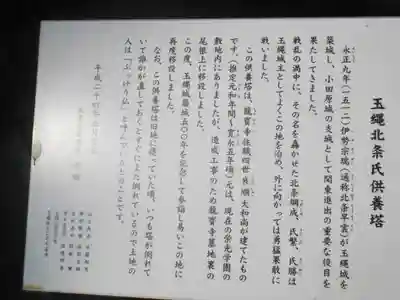 玉縄北条氏供養塔
永正九年(一五一二)伊勢宗瑞(通称北条早雲)が玉縄城を
築城し、小田原城の支城として関東進出の重要な役目を
果たしてきました。
戦乱の渦中に、その名を轟かせた北条綱成、氏繁、氏勝は
玉縄城主としてよくこの地を治め、外に向かっては勇猛果敢に
戦いました。
この供養塔は、龍寳寺住職四世 大和尚が建てたもの
です。(推定元和年間〜寛永五年頃)元は、現在の栄光学園の
敷地内にありましたが、造成工事のため龍寳寺墓地裏の
尾根上に移設しました。
この度、玉縄城築城五〇〇年を記念して参詣し易いこの地に
再度移設しました。
なお、この供養塔は旧地に建っていた頃、いつも塔が倒れて
いて誰かが直しておくとすぐにまた倒れているので土地の
人は「ぶっけ仏」と呼んでいたとのことです。
平成二十四年